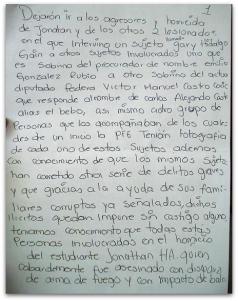 1
Dejaron ir a los agresores y homicida
de Jonatan y de los otros 2 lesionados
en el que intervino un sujeto gary Hidalgo
Gain a otros sujetos Involucrados uno que
es sobrino del procurador de nombre emilio
Gonzalez Rubio a otro sobrino del actual
diputado Federal Victor Manuel Castro Cosío
que responde al nombre de carlos Alejandro Castro
alias el bebo, así mismo cidro grupo de
Personas que los acompañaban de los cuales
des de un inicio la PFE Tenían fotografía
de cada uno de estos Sujetos ademas
con conocimiento de que los mismos sujetos
han cometido otra serie de delitos graves
y que gracias a la ayuda de sus fami-
liares corruptos ya señalados, dichos
ilícitos quedan Impune sin castigo alguno
tenemos conocimiento que todas estas
Personas Involucradas en el homicidio
del estudiante Jonathan H.A. quien
cobardemente fue asesinado con disparos
de arma de fuego y con impacto de bala